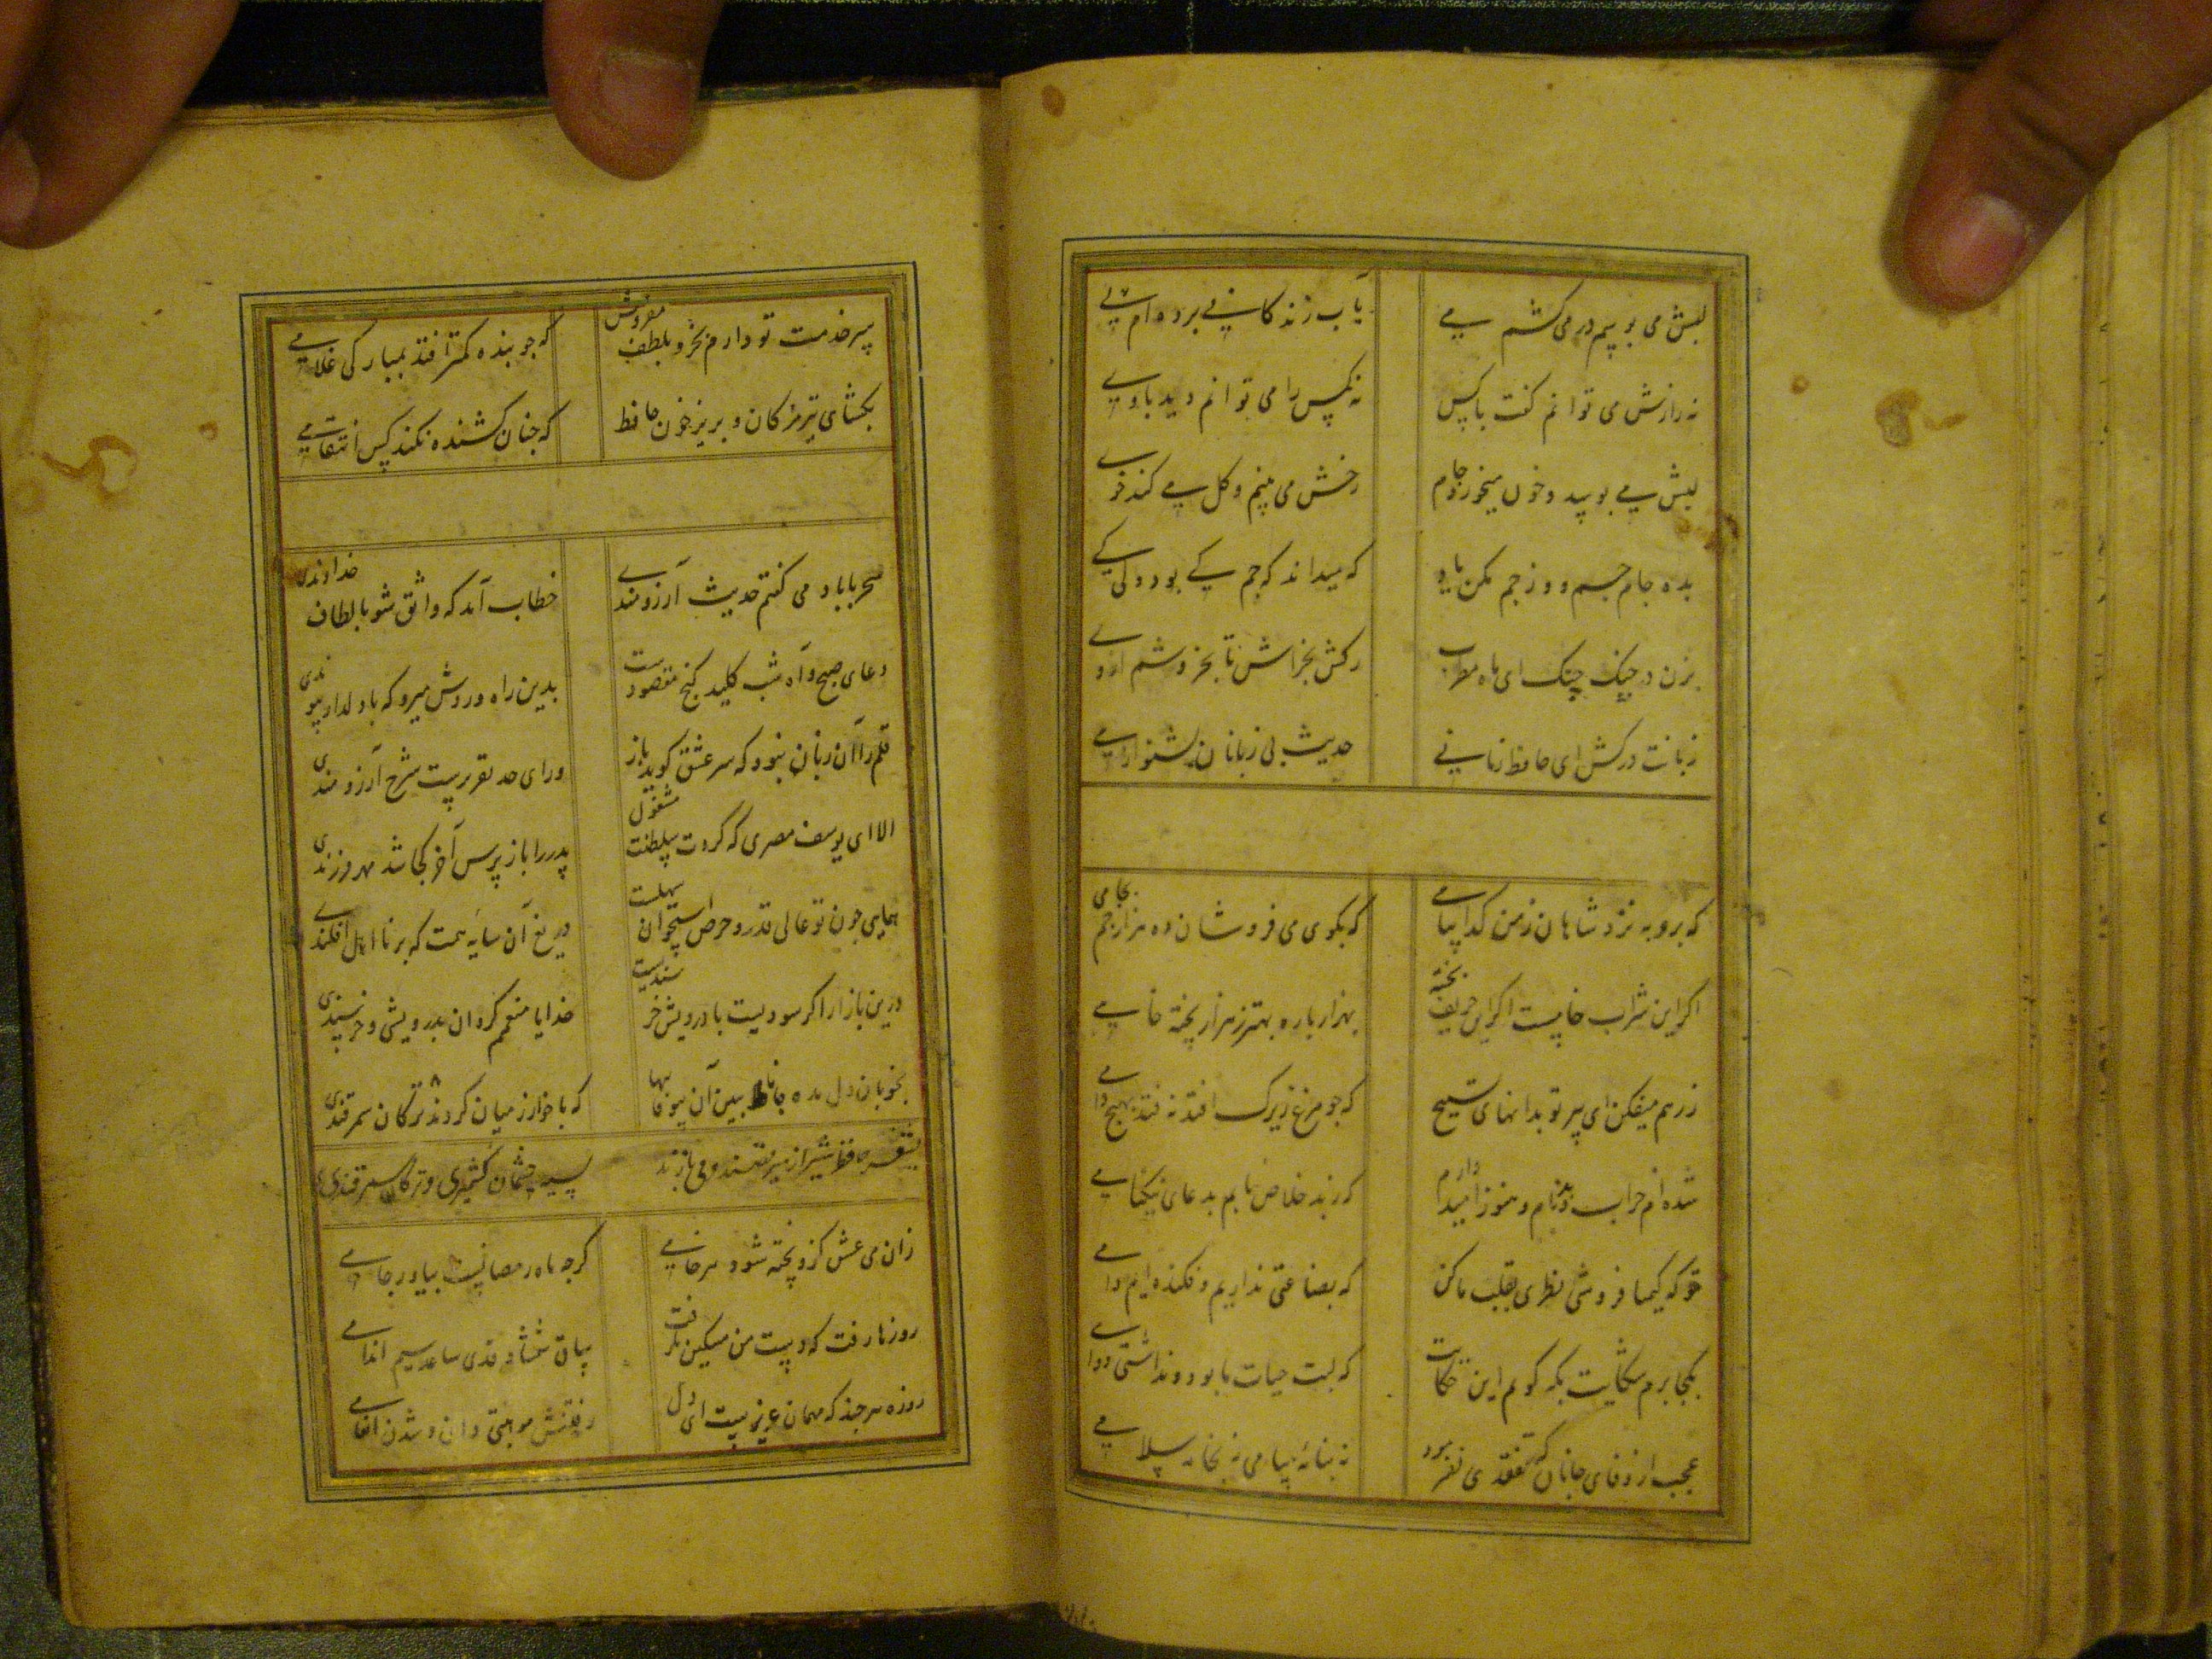 لبش می بوسم و در می کشم می بآب زندگانی برده ام پی
نه رازش می توانم گفت با کس نه کس را می توانم دید با وی
لبش می بوسد و خون میخورد جام رخش می بینم و گل می کند خوی
بده جام جم و از جم مکن یاد که میداند که جم کی بود و کی کی
بزن در چنگ چنگ ای ماه مطرب رکش بخراش تا بخروشم از وی
زبانت درکش ای حافظ زمانی حدیث بی زبانان بشنو از نی
که برد به نزد شاهان ز من گدا پیامی که بکوی می فروشان دو هزار جم بجامی
اگر این شراب خامست اگر این حریف پخته بهزار باره بهتر ز هزار پخته خامی
ز رهم میفکن ای پیر تو بدانهای تسبیح که جو مرغ زیرک افتد نه فتد بهیچ دامی
شده ام خراب و بدنام و هنوز امیدوارم که ز بند خلاص یابم بدعای نیکنامی
تو که کیمیا فروشی نظری بقلب ما کن که بضاعتی نداریم و فکنده ایم دامی
بکجا برم شکایت بکه گویم این حکایت که لبت حیات ما بود و نداشتی دوامی
عجب از وفای جانان که تفقدی نفرمود نه بنامه پیامی نه بخامه سلامی
سر خدمت تو دارم بخر و بلطف مفروش که جو بنده کمتر افتد بمبارکی غلامی
بکشای تیر مژکان و بریز خون حافظ که جنان کشنده نکند کس انتقامی
سحر با باد می گفتم حدیث آرزومندی خطاب آمد که واثق شو بالطاف خداوندی
دعای صبح و آه شب کلید کنج مقصودست بدین راه و روش میرو که با دلدار پیوندی
قلم را آن زبان نبود که سر عشق گوید باز ورای حد تقریرست شرح آرزومندی
الا ای یوسف مصری که کردت سلطنت مشغول پدر را باز پرس آخر کجا شد مهر فرزندی
همایی جون تو عالی قدر و حرص استخوان سهلست دریغ آن سایه همت که بر نا اهل افکندی
درین بازار اگر سودیست با درویش خرسندیست خدایا منعمم گردان بدرویشی و خرسندی
بخوبان دل مده حافظ ببین آن بیوفایها که با خوارزمیان کردند ترکان سمرقندی
بشعر حافظ شیراز میرقصند و می نازند سیه چشمان کشمیری و ترکان سمرقندی
زان می عشق کزو پخته شود هر خامی گرجه ماه رمضانست بیاور جامی
روزها رفت که دست من مسکین نگرفت ساق شمشاد قدی ساعد سیم اندامی
روزه هر جند که مهمان عزیزست ای دل رفتنش موهبتی دان و شدن انعامی